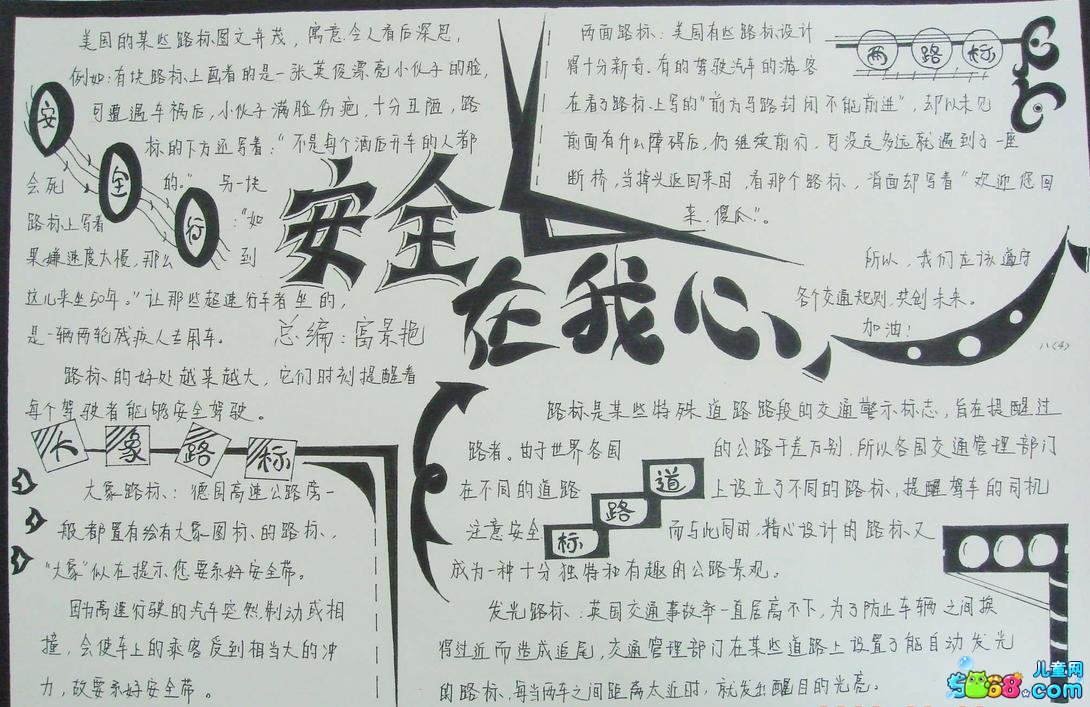 美国的某些路标图文并茂，寓意令人看后深思，
例如：有块路标上画着的是一张英俊漂亮小伙子的脸，
可遭遇车祸后，小伙子满脸伤疤，十分丑陋，路
标的下方还写着：“不是每个酒后开车的人都
会死的。”另一块
路标上写着：“如
果嫌速度太慢，那么到
这儿来坐50年。”让那些超速行车者坐的，
是一辆两轮残疾人专用车。
路标的好处越来越大，它们时刻提醒着
每个驾驶者能够安全驾驶。
安全行
安全
在我心
总编：富景艳
两路标
两面路标：美国有些路标设计
得十分新奇。有的驾驶汽车的游客
在看了路标上写的“前方马路封闭不能前进”，却以未见
前面有什么障碍后，仍继续前行，可没走多远就遇到了一座
断桥，当掉头返回来时，看那个路标，背面却写着“欢迎您回
来，傻瓜”。
所以，我们应该遵守
各个交通规则，共创未来。
加油！
八〈4〉
大象路标
大象路标：德国高速公路旁一
般都置有绘有大象图标的路标，
“大象”似在提示您要系好安全带。
因为高速行驶的汽车突然制动或相
撞，会使车上的乘客受到相当大的冲
力，故要系好安全带。
道路标
路标是某些特殊道路路段的交通警示标志，旨在提醒过
路者。由于世界各国的公路千差万别，所以各国交通管理部门
在不同的道路上设立了不同的路标，提醒驾车的司机
注意安全而与此同时，精心设计的路标又
成为一种十分独特和有趣的公路景观。
发光路标：英国交通事故率一直居高不下，为了防止车辆之间挨
得过近而造成追尾，交通管理部门在某些道路上设置了能自动发光
的路标，每当两车之间距离太近时，就发出醒目的光亮。
儿童网
5068.com